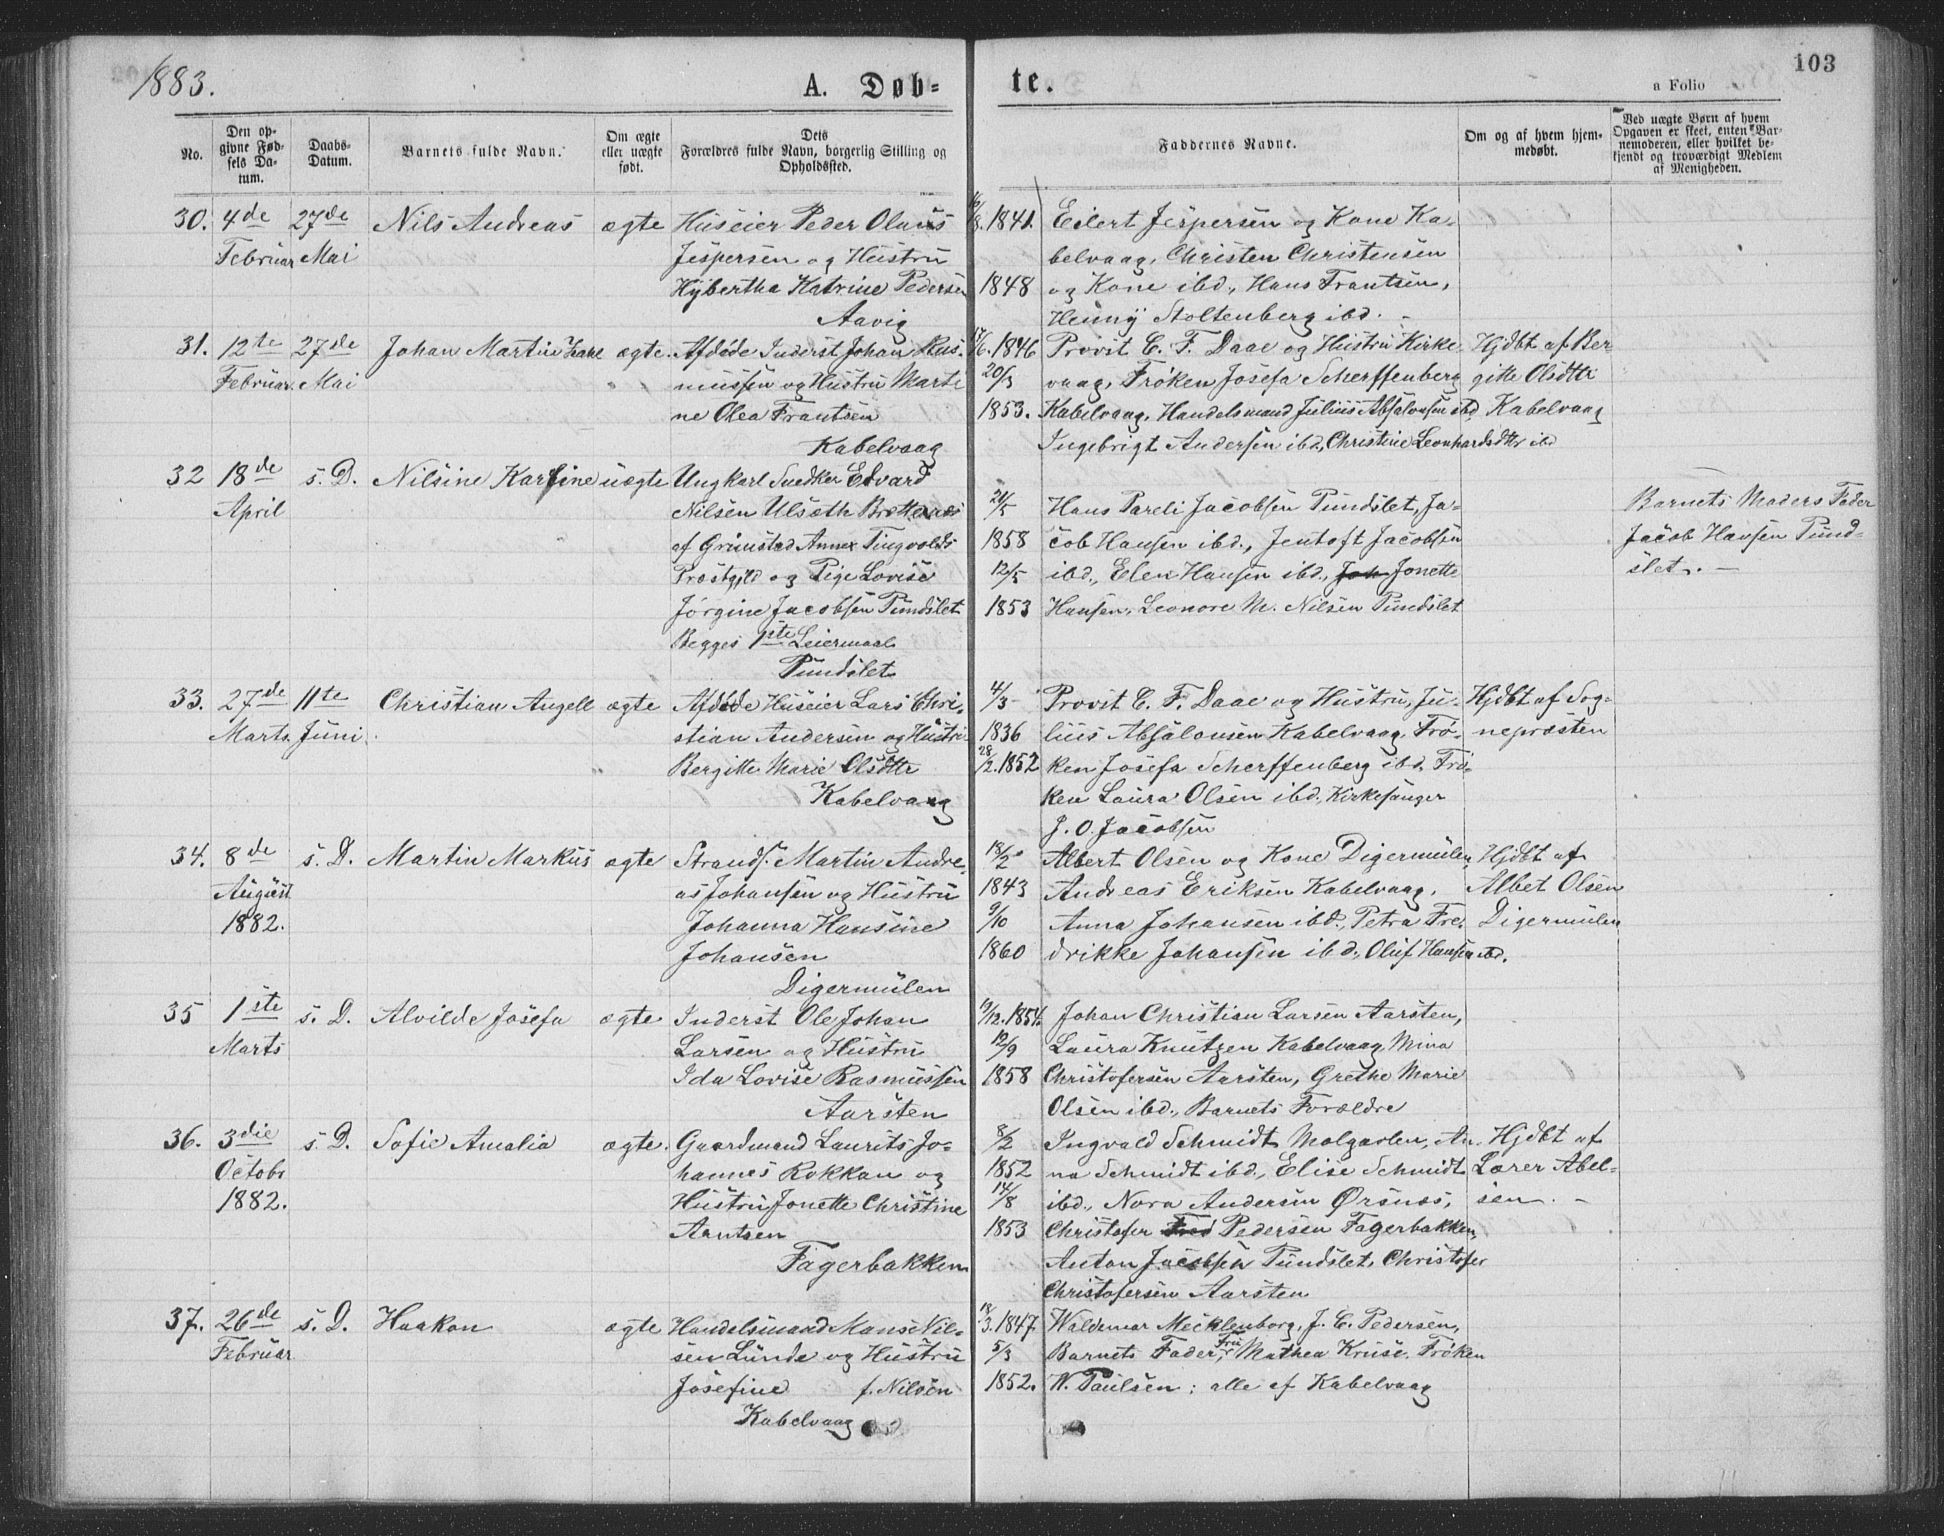 1883.
A. Døb-
te.
103
a Folio
No.
Den op-
givne Fød-
sels Da-
tum.
Daabs-
Datum.
Barnets fulde Navn.
Om ægte
eller uægte
født.
Dets
Forældres fulde Navn, borgerlig Stilling og
Opholdssted.
Faddernes Navne.
Om og af hvem hjem-
medøbt.
Ved uægte Børn af hvem
Opgaven er skeet, enten Bar-
nemoderen, eller hvilket be-
kjendt og troværdigt Medlem
af Menigheden.
30. 4de 27de Nils Andreas ægte Huseier Peder Olaus
Februar Mai Jespersen og Hustru
Hybertha Katrine Pedersen
Aavig
1841. Eilert Jespersen og Kone Ka-
belvaag, Christen Christensen
1848 og Kone ibd., Hans Frantsen,
Henny Stoltenberg ibd. -
31. 12te 27de Johan Martin ægte. Afdøde Inderst Johan Ras-
Februar. Mai mussen og Hustru Marti
ne Olea Frantsen
Kabelvaag
17/6. 1846 Provst C. F. Daae og Hustru Kirke- Hjdbt af Ber
20/3 vaag, Frøken Josefa Scherffenberg gitte Olsdtr
1853. Kabelvaag, Handelsmand Julius Absalonsen ibd Kabelvaag
Ingebrigt Andersen ibd., Christine Leonhardsdtr ibd
32 18de s. D. Nilsine Karsine uægte Ungkarl Snedker Edvard
April Nilsen Ulsæth
af Grimstad Annex Tingvolds
Præstgjld og Pige Lovise
Jørgine Jacobsen Pundslet
Begges 1ste Leiermaal
Pundslet
21/5 Hans Pareli Jacobsen Pundslet, Ja-
1858 cob Hansen ibd., Jentoft Jacobsen
12/5 ibd., Elen Hansen ibd., Joh Jonette
1853 Hansen, Leonore M. Nilsen Pundslet
Barnets Moders Fader
Jacob Hansen Pund-
slet. -
33. 27de 11te Christian Angell ægte Afdøde Huseier Lars Chri-
Marts Juni. stian Andersen og Hustru
Bergitte Marie Olsdtr
Kabelvaag
4/3 - Provst C. F. Daae og Hustru, Ju- Hjdbt af Sog-
1836 lius Absalonsen Kabelvaag, Frø- nepræsten
28/2. 1852 ken Josefa Scherffenberg ibd. Frø-
ken Laura Olsen ibd., Kirkesanger
J. O. Jacobsen
34. 8de s. D. Martin Markus ægte Strands. Martin Andre-
August as Johansen og Hustru
1882. Johanna Hansine
Johansen
Digermulen
18/2 Albert Olsen og Kone Digermulen, Hjdbt af
1843 Andreas Eriksen Kabelvaag, Albet Olsen
9/10 Anna Johansen ibd., Petra Fre- Digermulen
1860 drikke Johansen ibd., Oluf Hansen ibd.
35 1ste s. D. Alvilde Josefa ægte Inderst Ole Johan
Marts Larsen og Hustru
Ida Lovise Rasmussen
Aarsten
19/12. 1854. Johan Christian Larsen Aarsten,
12/9 Laura Knutzen Kabelvaag, Mina
1858 Christofersen Aarsten, Grethe Marie
Olsen ibd., Barnets Forældre
36. 3die s. D. Sofie Amalia ægte. Gaardmand Laurits Jo-
Octobr hannes Rokkan og
1882. Hustru Jonette Christine
Arntsen
Fagerbakken
8/2 Ingvald Schmidt Molgavlen, An- Hjdbt af
1852 na Schmidt ibd., Elise Schmidt Lærer Abel-
14/8 ibd., Nora Andersen Ørsnæs, sen. -
1853 Christofer Fred Pedersen Fagerbakken,
Anton Jacobsen Pundslet, Christofer
Christofersen Aarsten
37. 26de s. D. Haakon ægte Handelsmand Mons Nil-
Februar sen Lunde og Hustru
Josefine f. Nilsen
Kabelvaag
18/3. 1847. Waldemar Mecklenborg, J. E. Pedersen,
5/3 Barnets Fader, Fru Mathea Kruse, Frøken
1852. W. Paulsen; alle af Kabelvaag